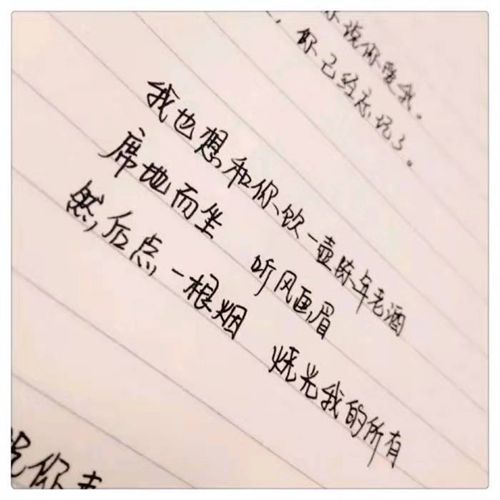 你说你爱我。
你已经忘记了。
我也想和你、饮一壶陈年老酒
席地而坐 听风画眉
然后点一根烟 烧光我的所有
说你